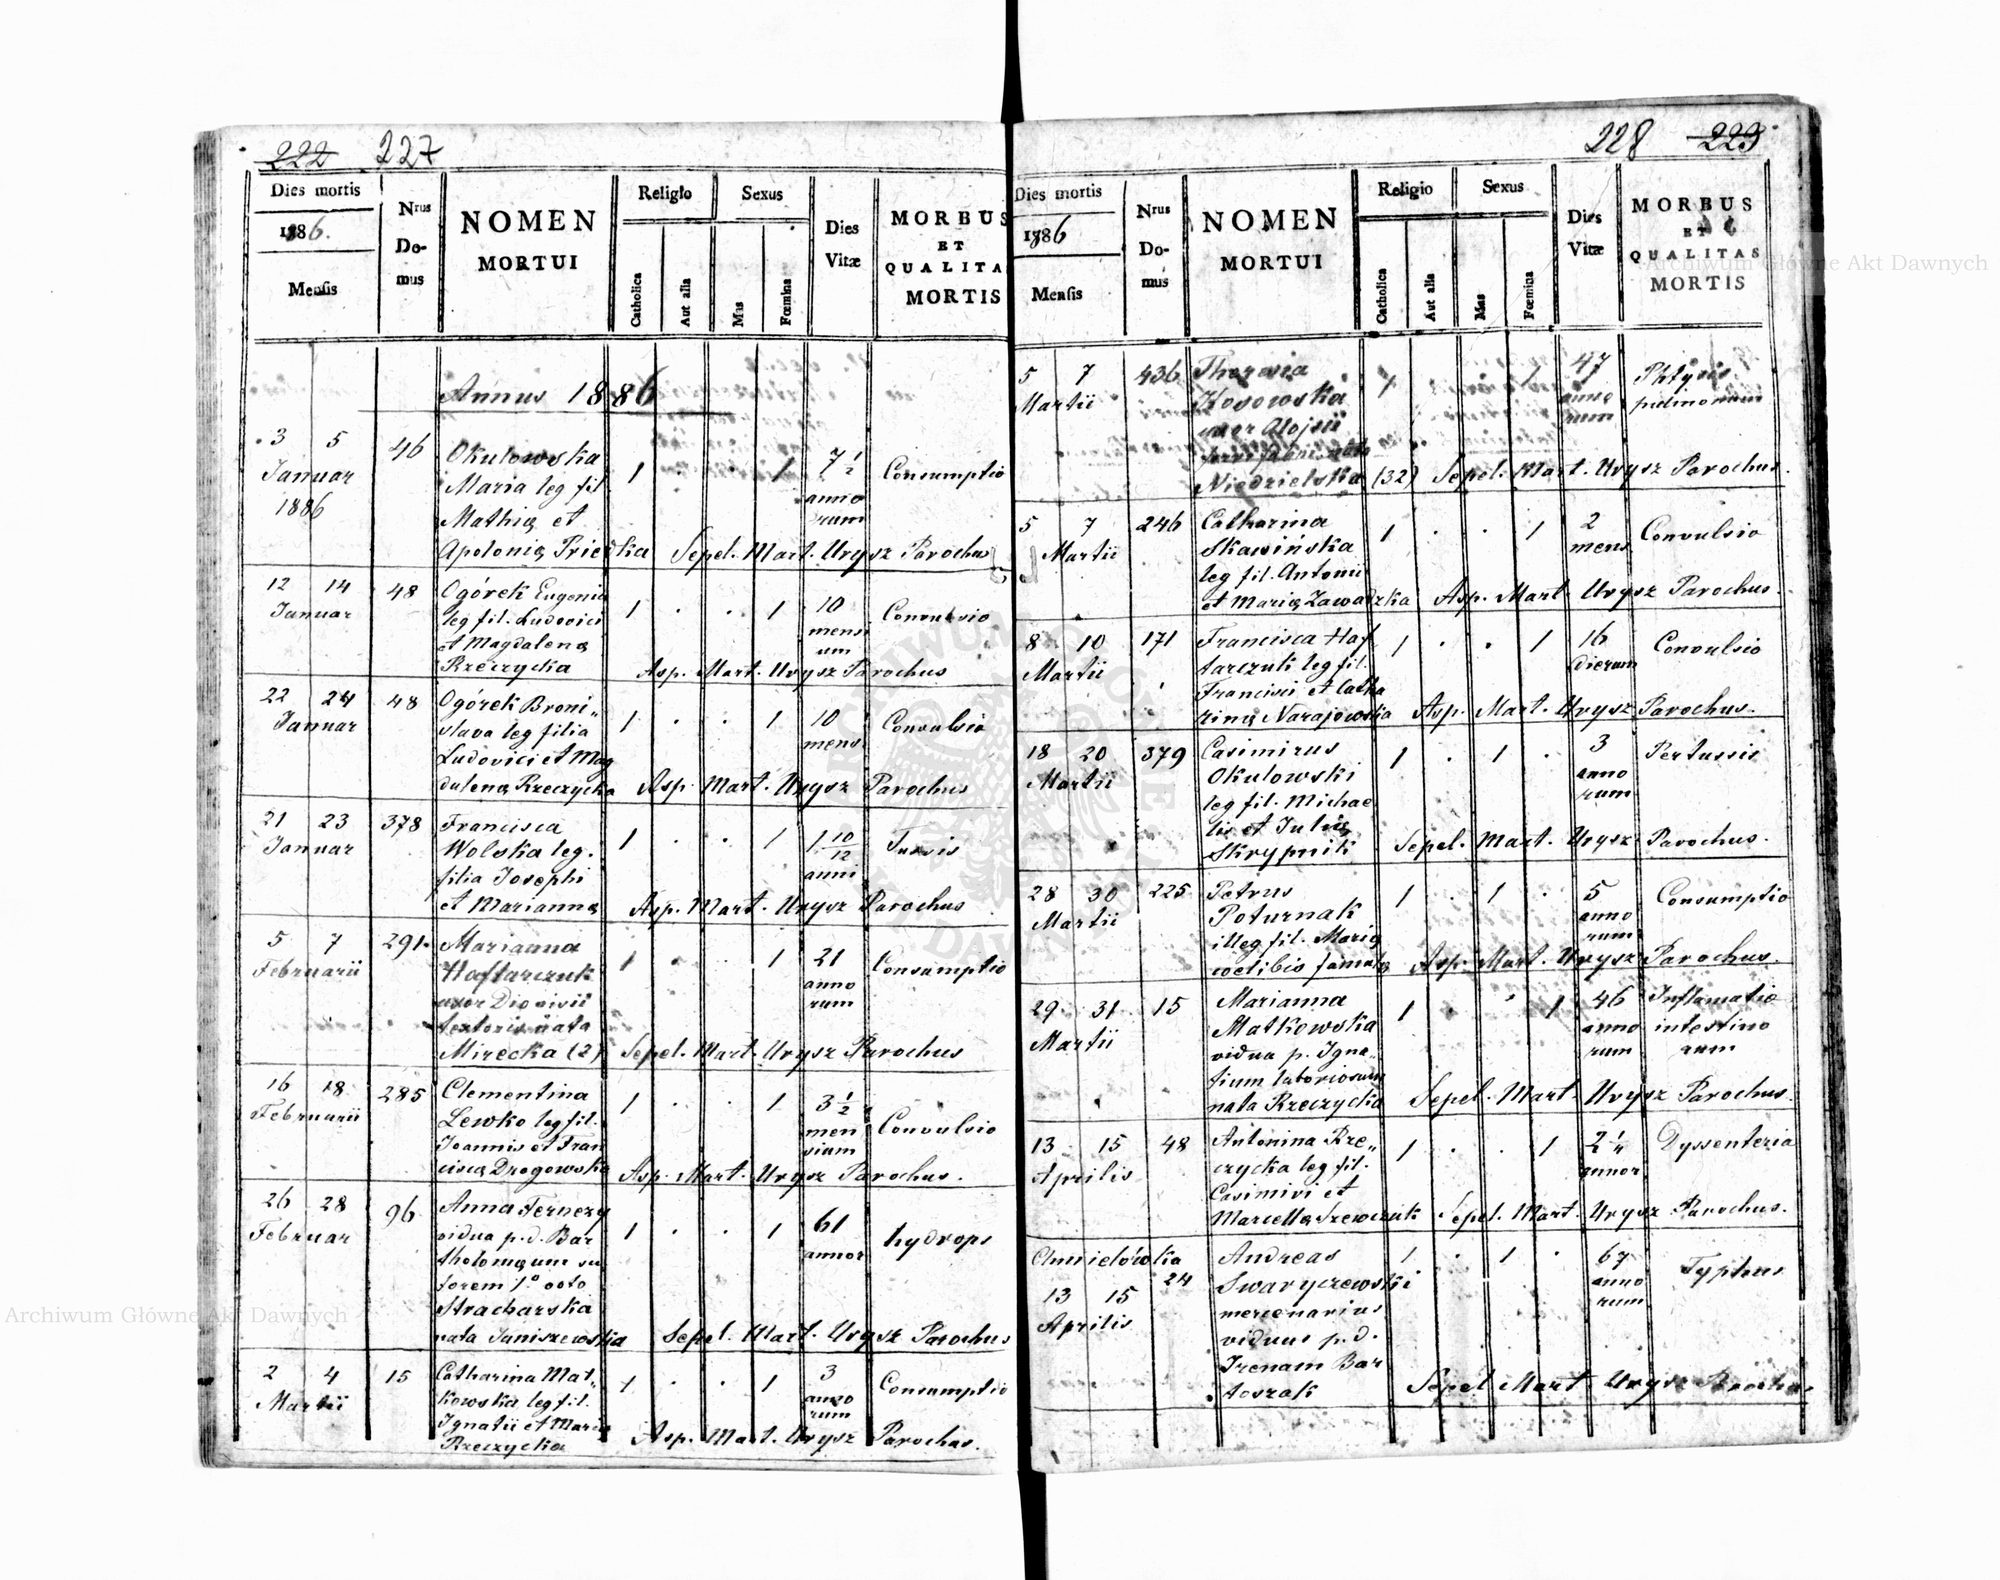 222 227
Dies mortis
1886.
Mensis
Nrus
Do-
mus
NOMEN
MORTUI
Religio
Catholica
Aut alia
Sexus
Mas
Fœmina
Dies
Vitæ
MORBUS
ET
QUALITA
MORTIS
Annus 1886
3 5 46 Okulowska
Januar Maria leg fil 1 . . 1 7 1/2 Consumptio
1886 Mathiæ et anno
rum
Apoloniæ Sepel. Mart. Urysz Parochus
12 14 48 Ogórek Eugenia
Januar leg fil. Ludovici 1 . . 1 10 Convulsio
et Magdalenæ mensi
um
Rzeczycka Asp. Mart. Urysz Parochus
22 24 48 Ogórek Broni„
Januar slava leg filia 1 . . 1 10 Convulsio
Ludovici et Mag mens
dalenæ Rzeczycka Asp. Mart. Urysz Parochus
21 23 378 Francisca
Januar Wolska leg. 1 . . 1 1 10/12 Tussis
filia Josephi anni
et Mariannæ Asp. Mart. Urysz Parochus
5 7 291. Marianna
Februarii Haftarczuk 1 . 1 21 Consumptio
uxor Dionisii anno
textoris nata rum
Mirecka (2) Sepel. Mart. Urysz Parochus
16 18 285 Clementina
Februarii Lewko leg fil. 1 . . 1 3 1/2 Convulsio
Joannis et Fran men
sium
ciscæ Drogowska Asp. Mart. Urysz Parochus.
26 28 96 Anna
Februar vidua p. d. Bar 1 . . 1 61 hydrops
tholomæum su annor
torem 1º voto
Stracharska
nata Janiszewska Sepel. Mart. Urysz Parochus
2 4 15 Catharina Mat„
Martii kowska leg fil. 1 . . 1 3 Consumptio
Ignatii et Mariæ anno
rum
Rzeczycka Asp. Mart. Urysz Parochus.
228 223
Dies mortis
1886
Mensis
Nrus
Do-
mus
NOMEN
MORTUI
Religio
Catholica
Aut alia
Sexus
Mas
Fœmina
Dies
Vitæ
MORBUS
ET
QUALITAS
MORTIS
5 7 436 Theresia 1 1 47 Phtysis
Martii Kosowska anno pulmonum
uxor Alojsii rum
nata
Niedzielska (32) Sepel. Mart. Urysz Parochus.
5 7 246 Catharina 1 . . 1 2 Convulsio
Martii Skawińska mens
leg fil. Antonii
et Mariæ Zawadzka Asp. Mart. Urysz Parochus.
8 10 171 Francisca Haf 1 . . 1 16 Convulsio
Martii tarczuk leg fil. dierum
Francisci et Catha
rinæ Narajowska Asp. Mart. Urysz Parochus.
18 20 379 Casimirus 1 . 1 . 3 Pertussis
Martii Okulowski anno
leg fil. Michae rum
lis et Juliæ
Skrypnik Sepel. Mart. Urysz Parochus.
28 30 225 Petrus 1 . 1 . 5 Consumptio
Martii Poturnak anno
illeg fil. Mariæ rum
coelibis famulæ Asp. Mart. Urysz Parochus.
29 31 15 Marianna 1 . . 1 46 Inflamatio
Martii Matkowska anno intestino
vidua p. Igna„ rum rum
tium laboriosum
nata Rzeczycka Sepel. Mart. Urysz Parochus.
13 15 48 Antonina Rze„ 1 . . 1 Dyssenteria
Aprilis czycka leg fil. annor
Casimiri et
Marcellæ Szewczuk Sepel. Mart. Urysz Parochus.
Chmielówka Andreas 1 . 1 . 67 Typhus
24 Swaryczewski anno
13 15 mercenarius rum
Aprilis viduus p. d.
Irenam Bar
toszak Sepel. Mart. Urysz Parochus
Archiwum Główne Akt Dawnych
Archiwum Główne Akt Dawnych